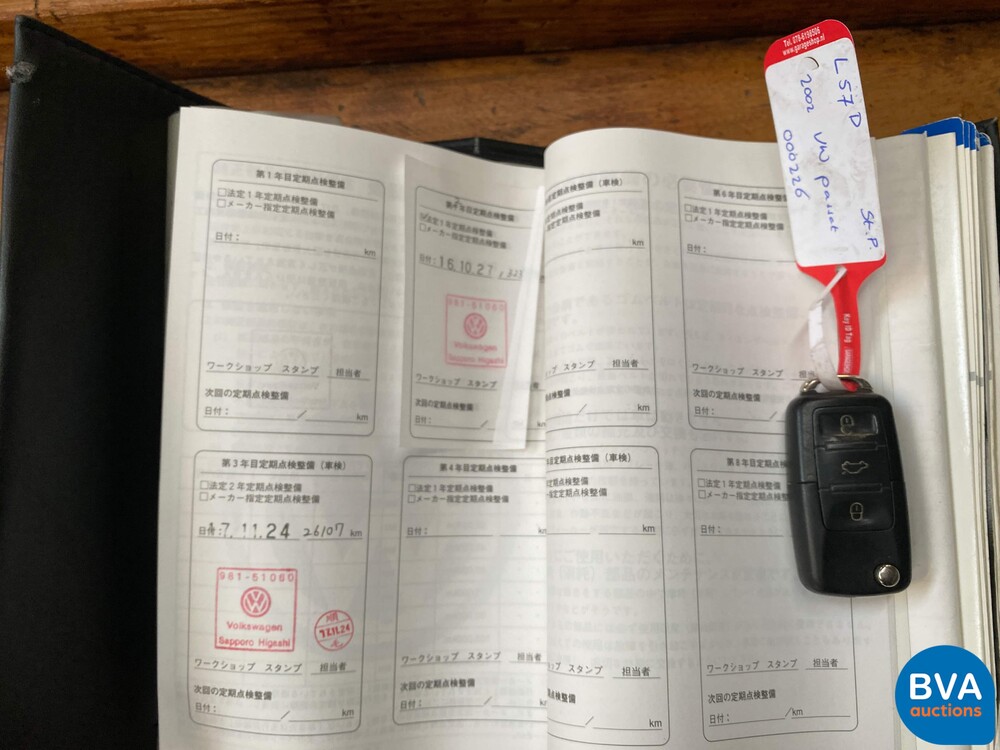 第1年目定期点検整備
□法定1年定期点検整備
□メーカー指定定期点検整備
日付：
km
ワークショップ スタンプ 担当者
次回の定期点検整備
日付： / km
法定1年定期点検整備
□メーカー指定定期点検整備
日付：16.10.27
961-51060
Volkswagen
Sapporo Higashi
ワークショップ スタンプ
次回の定期点検整備
日付：
第3年目定期点検整備（車検）
□法定2年定期点検整備
□メーカー指定定期点検整備
日付：17.11.24 26107 km
961-51060
Volkswagen
Sapporo Higashi
17.11.24
ワークショップ スタンプ 担当者
次回の定期点検整備
日付： / km
第4年目定期点検整備
□法定1年定期点検整備
□メーカー指定定期点検整備
日付：
ワークショップ スタンプ 担当者
次回の定期点検整備
日付： /
定期点検整備（車検）
定期点検整備
km
スタンプ 担当者
点検整備
/ km
目定期点検整備（車検）
定期点検整備
指定定期点検整備
km
スタンプ 担当者
点検整備
/ km
第6年目定期点検整備
□法定1年定期点検整備
□メーカー指定定期点検整
日付：
ワークショップ スタンプ
次回の定期点検整備
日付：
第8年目定期点検
□法定1年定期点検
□メーカー指定定期点
日付：
ワークショップ スタンプ 担当者
次回の定期点検整備
日付： /km
Tel. 078-6198506
www.garageshop.nl
L57D
2002 VW passat
000226
St.P.
Key ID Tag
BVA
auctions